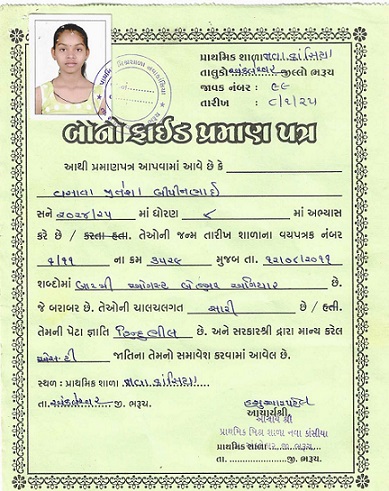 પ્રાથમિક શાળા નવા કાંસિયા
તાલુકો અંકલેશ્વર જીલ્લો ભરૂચ
જાવક નંબર : ૯૯
તારીખ : ૮/૧/૨૫
બોનોફાઈડ પ્રમાણ પત્ર
આથી પ્રમાણપત્ર આપવામાં આવે છે કે
વસાવા બીપીનભાઈ
સને ૨૦૨૪/૨૫ માં ધોરણ ૮ માં અભ્યાસ
કરે છે / કરતા હતા. તેઓની જન્મ તારીખ શાળાના વયપત્રક નંબર
ના ક્રમ ૩૫૨૯ મુજબ તા.
શબ્દોમાં બારમી ઓગસ્ટ બે હજાર અગિયાર છે.
જે બરાબર છે. તેઓની ચાલચલગત સારી છે / હતી.
તેમની પેટા જ્ઞાતિ હિન્દુભીલ છે. અને સરકારશ્રી દ્વારા માન્ય કરેલ
એસ.ટી જાતિના તેમનો સમાવેશ કરવામાં આવેલ છે.
સ્થળ : પ્રાથમિક શાળા નવા કાંસિયા
તા. અંકલેશ્વર જી. ભરૂચ.
આચાર્યશ્રી,
આચાર્ય શ્રી
પ્રાથમિક મિશ્ર શાળા નવા કાંસીયા
પ્રાથમિક શાળા
તા. જી. ભરૂચ.